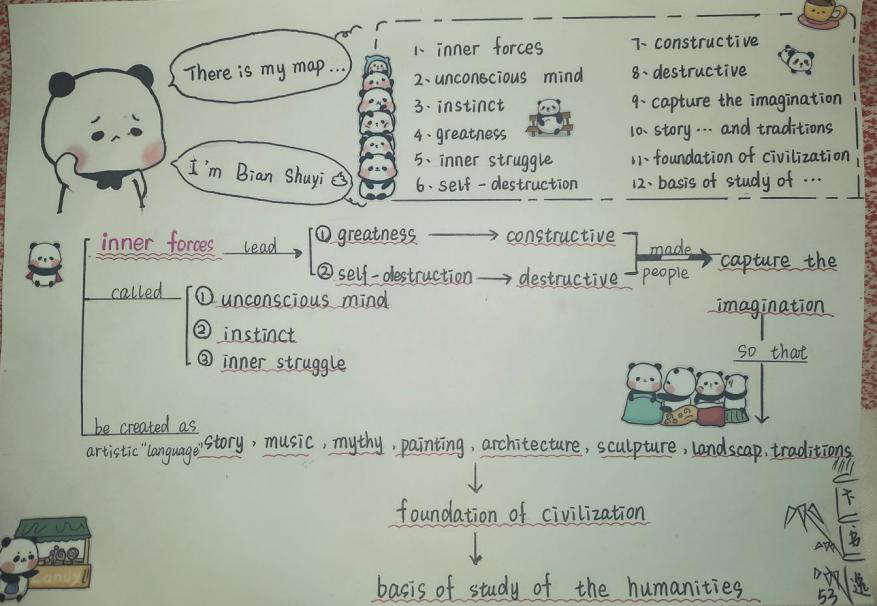 There is my map...
I'm Bian Shuyi
1、inner forces
2、unconscious mind
3、instinct
4、greatness
5、inner struggle
6、self-destruction
7、constructive
8、destructive
9、capture the imagination
10、story … and traditions
11、foundation of civilization
12、basis of study of …
inner forces
lead
① greatness
constructive
② self-destruction
destructive
made
people
capture the
imagination
called
① unconscious mind
② instinct
③ inner struggle
so that
be created as
artistic "language"
story, music, mythy, painting, architecture, sculpture, landscap, traditions
foundation of civilization
basis of study of the humanities
Candy
卞
书
逸
53